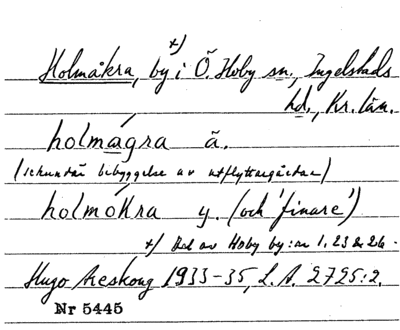 x)
Holmåkra, by i Ö. Hoby sn., Ingelstads
hd., Kr. län.
holmágra ä.
(sekundär bebyggelse av utflyttargårdar)
holmókra y. (och 'finare')
x) Del av Hoby by: nr 1, 23 & 26.
Hugo Areskoug 1933-35, L.A. 2725:2.
Nr 5445